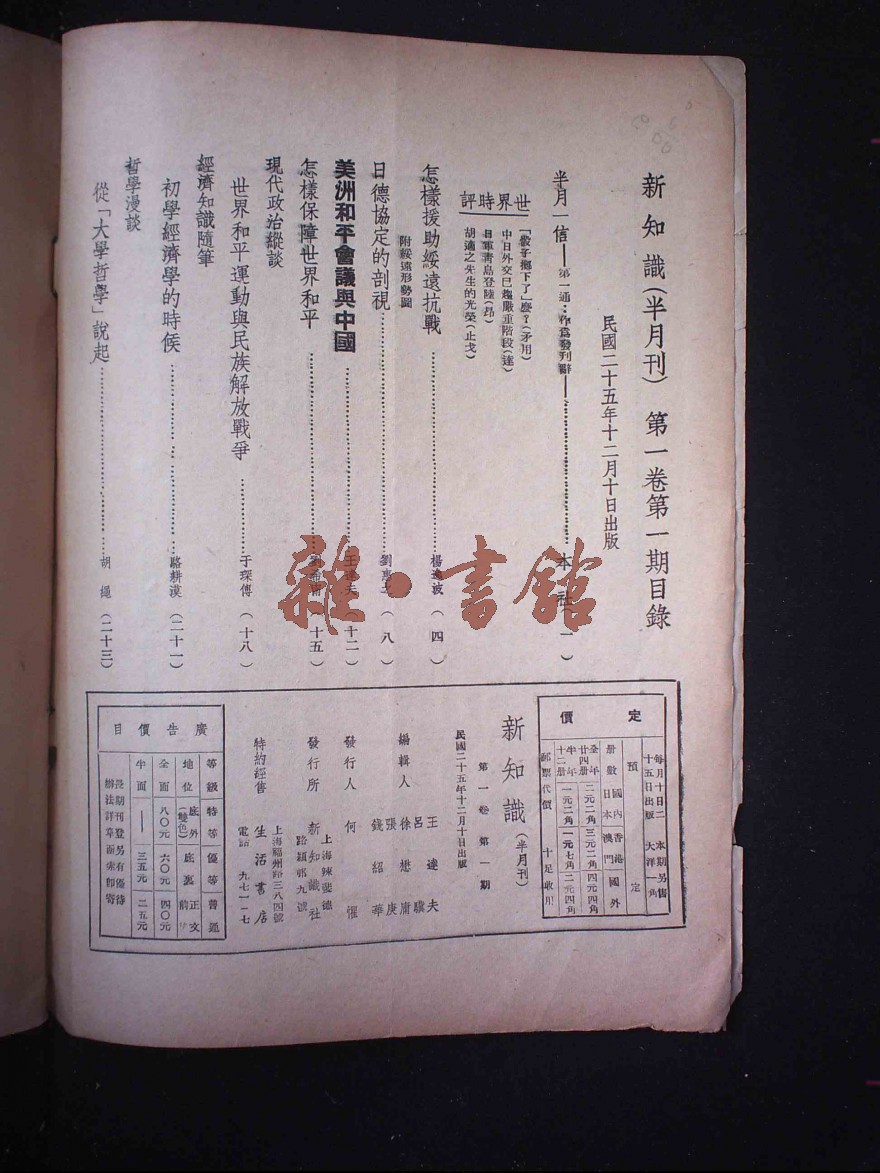 新知識（半月刊）　第一卷第一期目錄
民國二十五年十二月十日出版
半月一信——第一通：作爲發刊辭——……本　社（一）
世界時評
「骰子擲下了」麼？（矛用）
中日外交已趨嚴重階段（達）
日軍青島登陸（昂）
胡適之先生的光榮（止戈）
怎樣援助綏遠抗戰……楊逸波（四）
附綏遠形勢圖
日德協定的剖視……劉惠之（八）
美洲和平會議與中國……王達夫（十二）
怎樣保障世界和平……（十五）
現代政治縱談
世界和平運動與民族解放戰爭……于琛傅（十八）
經濟知識隨筆
初學經濟學的時候……駱耕漠（二十一）
哲學漫談
從「大學哲學」說起……胡　繩（二十三）
雜·書館
定價
每月十日二十五日出版
本期另售大洋一角
預定
册數　國內日本　香港澳門　國外
全年廿四册　二元二角　三元二角　四元四角
半年十二册　一元二角　一元七角　二元四角
郵票代價　十足收用
新知識（半月刊）
第一卷第一期
民國二十五年十二月十日出版
編輯人
王達夫
呂驥
徐懋庸
張庚
錢紹華
發行人　何　懼
發行所　新知識社
上海辣斐德路穎邨九號
特約經售　生活書店
上海福州路三八四號
電話　九七一一七
廣告價目
等級　特等　優等　普通
地位　底外（雙色）　底裏　正文前
全面　八〇元　六〇元　四〇元
半面　——　三五元　二五元
長期刊登另有優待
辦法詳章函索卽寄